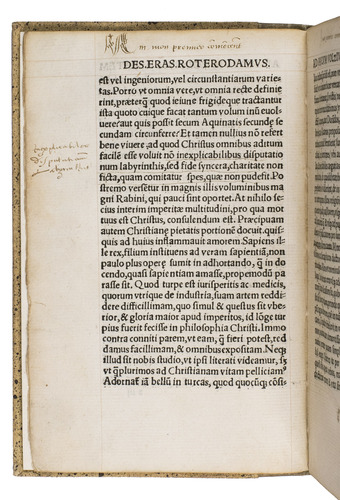 DES. ERAS. ROTERODAMVS.
est vel ingeniorum, vel circunstantiarum varie
tas. Porro vt omnia vere, vt omnia recte definie
rint, præterq̃ quod ieiune frigideque tractantur
ista quoto cuique facat tantum volumĩnũ euol-
uere? aut quis possit secum Aquinatis secundę se
cundam circunferre? Et tamen nullius nõ refert
bene viuere, ad quod Christus omnibus aditum
facilẽ esse voluit nõ inexplicabilibus disputatio
num labyrinthis, sed fide syncera, charitate non
ficta, quam comitatur spes, quæ non pudefit. Po
stremo versẽtur in magnis illis voluminibus ma
gni Rabini, qui pauci sint oportet. At nihilo se-
cius interim imperitæ multitudini, pro qua mor
tuus est Christus, consulendum est. Præcipuam
autem Christianę pietatis portionẽ docuit. quis-
quis ad huius inflammauit amorem. Sapiens il-
le rex, filium instituens ad veram sapientiã, non
paulo plus operę sumit in adhortando, q̃ in do
cendo, quasi sapientiam amasse, propemodũ pa
rasse sit. Quod turpe est iurisperitis ac medicis,
quorum vtrique de industria, suam artem reddi-
dere difficillimam, quo simul & quæstus sit vbe-
rior, & gloria maior apud imperitos, id lõge tur
pius fuerit fecisse in philosophia Christi. Immo
contra conniti parem, vt eam, q̃ fieri potest, red
damus facillimam, & omnibus expositam. Neq;
illud sit nobis studio, vt ipsi literati videamur, sꝫ
vt q̃plurimos ad Christianam vitam pelliciam⁹
Adornať iã bellũ in turcas, quod quocũq; cõsi-